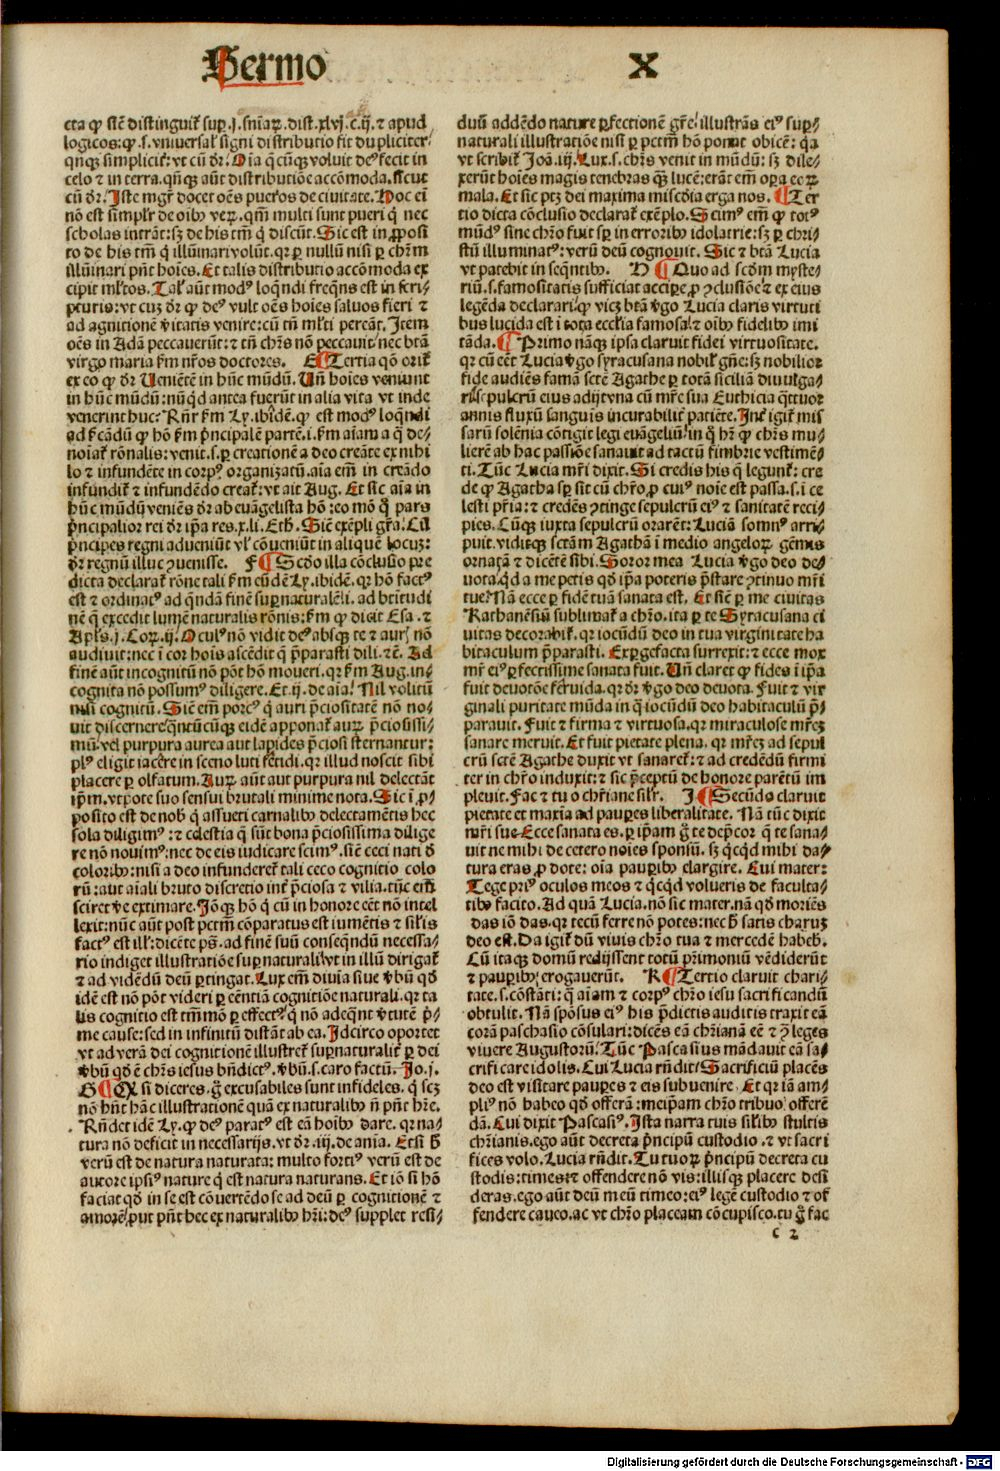 Sermo
X
cta qꝫ sic̄ distinguit̄ sup̱. j. sn̄iaꝝ. dist. xlvj. c. ij. ⁊ apud
logicos: qꝫ. s. vniversal̓ signi distributio fit dupliciter
celo ⁊ in terra. qn̄qꝫ aūt distributiōe accōmoda. sicut
cū dr̄. Iste mgr̄ docet oēs pueros de civitate. Hoc ei̅
scholas intrāt: sꝫ de his tm̄ q̇ discūt. Sic est in ꝓposi
to de his tm̄ q̇ illūinari volūt. qr ꝑ nullū nisi ꝑ chr̄m
illūinari pn̄t hoies. Et talis distributio accōmoda ex
cipit ml̓tos. Tal̓ aūt modꝰ loqn̄di freqn̄s est in scri
pturis: vt cuꝫ dr̄ qꝫ deꝰ vult oēs hoies salvos fieri ⁊
ad agnitionē v̓itatis venire: cū tn̄ ml̓ti pereāt. Item
oēs in Adā peccaverūt: ⁊ tn̄ chr̄s nō peccavit: nec btā
virgo maria ẜm nr̄os doctores. E Tertia qō orit̄
ex eo qꝫ dr̄ Venientē in hūc mūdū. Un̄ hoies veniunt
in hūc mūdū: nūqd antea fuerūt in alia vita vt inde
venerint huc: Rn̄r ẜm Ly. ibidē. qꝫ est modꝰ loqn̄di
infundit̄ ⁊ infundēdo creat̄: vt ait Aug. Et sic aīa in
hūc mūdū veniēs dr̄ ab evāgelista hō: eo mō q̇ pars
p̄ncipalior rei dr̄ ip̄a res. x. li. Eth. Sic̄ exēpli gr̄a. Cū
p̄ncipes regni adveniūt vl̓ cōveniūt in aliquē locuꝫ:
dr̄ regnū illuc ꝯvenisse. F Scd̄o illa cōclusio pre
dicta declarat̄ rōne tali ẜm eūdē Ly. ibidē. qr hō factꝰ
est ⁊ ordinatꝰ ad qn̄dā finē sup̱naturalē. i. ad btitudi
nē q̇ excedit lumē naturalis rōnis: ẜm qꝫ dicit Esa. ⁊
Apl̓s. j. Coꝝ. ij. Oculꝰ nō vidit deꝰ absqꝫ te ⁊ aurꝭ nō
audivit: nec i cor hoīs ascēdit q̇ p̄parasti dili. ⁊ē. Ad
finē aūt incognitū nō pōt hō moveri. qr ẜm Aug. in
cognita nō possumꝰ diligere. Et. ij. de aīa. Nil volitū
nisi cognitū. Sic̄ em̄ porcꝰ q̇ auri p̄ciositatē nō no
vit discernere qn̄tūcūqꝫ eidē apponat̄ auꝝ p̄ciosissi
mū: vel purpura aurea aut lapides p̄ciosi sternantur:
plꝰ eligit iacere in sceno luti fetidi. qr illud noscit sibi
placere ꝑ olfatum. Auꝝ aūt aut purpura nil delectāt
ip̄m. vtpote suo sensui brutali minime nota. Sic i ꝓ
posito est de nob̓ q̇ assueti carnalibꝰ delectamētis hec
sola diligimꝰ: ⁊ celestia q̇ sūt bona p̄ciosissima dilige
re nō novimꝰ: nec de eis iudicare scimꝰ. sic̄ ceci nati d̓
coloribꝰ: nisi a deo infunderet̄ tali ceco cognitio colo
rū: aut aīali bruto discretio int̓ p̄ciosa ⁊ vilia. tūc em̄
sciret v̓e extimare. Iōqꝫ hō q̇ cū in honore eēt nō intel
lexit: nūc aūt post pctm̄ cōparatus est iumētis ⁊ sil̓is
factꝰ est ill̓: dicēte ps̄. ad finē suū conseqn̄dū necessa
rio indiget illustratiōe sup̱naturali vt in illū dirigat̄
⁊ ad vidēdū deū ꝑtingat. Lux em̄ divīa sive v̓bū qd̓
idē est nō pōt videri ꝑ eēntiā cognitiōe naturali. qr ta
lis cognitio est tm̄mō ꝑ effectꝰ q̇ nō adeqn̄t v̓tutē p̄
me cause: sed in infinitū distāt ab ea. Idcirco oportet
vt ad verā dei cognitionē illustret̄ sup̱naturalit̄ ꝑ dei
v̓bū qd̓ ē chr̄s iesus bn̄dictꝰ. v̓bū. s. caro factū. Jo. j.
G Et si diceres. g̊ excusabiles sunt infideles. q̇ scꝫ
nō hn̄t hāc illustrationē quā ex naturalibꝰ n̄ pn̄t hr̄e.
Rn̄det idē Ly. qꝫ deꝰ paratꝰ est eā hoibꝰ dare. qr na
tura nō deficit in necessarijs. vt dr̄. iij. de anīa. Etsi b̄
verū est de natura naturata: multo fortiꝰ verū est de
autore ipsiꝰ nature q̇ est natura naturans. Et iō si hō
faciat qd̓ in se est cōvertēdo se ad deū ꝑ cognitionē ⁊
amorē ꝓut pn̄t hec ex naturalibꝰ hr̄i: deꝰ supplet resi
duū addēdo nature ꝑfectionē gr̄e. illustrās eiꝰ sup̱
naturali illustratiōe nisi ꝑ pctm̄ hō ponat obicē: q̇a
vt scribit̄ Joā. iij. Lux. s. chr̄s venit in mūdū: sꝫ dile
xerūt hoies magis tenebras qꝫ lucē: erāt em̄ oꝑa eoꝝ
mala. Et sic ptꝫ dei maxima miscd̄ia erga nos. Ter
tio dicta cōclusio declarat̄ exēplo. Scimꝰ em̄ qꝫ totꝰ
mūdꝰ sine chr̄o fuit sp̱ in erroribꝰ idolatrie: sꝫ ꝑ chri
stū illuminatꝰ: verū deū cognovit. Sic ⁊ btā Lucia
vt patebit in seqn̄tibꝰ. H Quo ad scd̄m myste
riū. s. famositatis sufficiat accipe ꝓ ꝯclusiōe ⁊ ex eius
legēda declarari. qꝫ vicꝫ btā v̓go Lucia claris virtuti
bus lucida est i tota eccl̓ia famosa. ⁊ oībꝰ fidelibꝰ imi
tāda. Primo nāqꝫ ip̄a claruit fidei virtuositate.
qr cū eēt Lucia v̓go syracusana nobil̓ gn̄e: sꝫ nobilior
fide audiēs famā scte̅ Agathe ꝑ totā siciliā divulga
ri: sepulcrū eius adijt vna cū mr̄e sua Euthicia qttuor
annis fluxū sanguis incurabilit̄ patiēte. Int̓ igit̄ mis
sarū solēnia cōtigit legi evāgeliū. in q̊ hr̄ qꝫ chr̄s mu
lierē ab hac passiōe sanavit ad tactū fimbrie vestimē
ti. Tūc Lucia mr̄i dixit. Si credis his q̇ legunt̄: cre
de qꝫ Agatha sp̱ sit cū chr̄o. ꝓ cuiꝰ noīe est passa. s. i ce
lesti pr̄ia: ⁊ credēs ꝯtinge sepulcrū eiꝰ ⁊ sanitatē reci
pies. Cūqꝫ iuxta sepulcrū orarēt: Luciā somnꝰ arri
puit. viditqꝫ sctām Agathā i medio angeloꝝ gēmis
ornatā ⁊ dicētē sibi. Soror mea Lucia v̓go deo de
vota. qd a me petis qd̓ ip̄a poteris p̄stare ꝯtinuo mr̄i
tue: Nā ecce ꝑ fidē tuā sanata est. Et sic̄ ꝑ me civitas
Kathanēsiū sublimat̄ a chr̄o. ita ꝑ te Syracusana ci
vitas decorabit̄. qr iocūdū deo in tua virginitate ha
bitaculum p̄parasti. Exp̱gefacta surrexit: ⁊ ecce mox
mr̄ eiꝰ ꝑfectissime sanata fuit. Un̄ claret qꝫ fides i ip̄a
fuit devotōe fervida. qr dr̄ v̓go deo devota. Fuit ⁊ vir
ginali puritate mūda in q̇ iocūdū deo habitaculū p̄
paravit. Fuit ⁊ firma ⁊ virtuosa. qr miraculose mr̄eꝫ
sanare meruit. Et fuit pietate plena. qr mr̄eꝫ ad sepul
crū scte̅ Agathe duxit vt sanaret̄: ⁊ ad credēdū firmi
ter in chr̄o induxit: ⁊ sic p̄ceptū de honore parētū im
plevit. Fac ⁊ tu o chr̄iane sil̓r. I Secūdo claruit
pietate et maxīa ad pauꝑes liberalitate. Nā tūc dixit
mr̄i sue. Ecce sanata es. ꝑ ip̄am g̊ te dep̄cor q̇ te sana
vit ne mihi de cetero noīes sponsū. sꝫ q̇cqd mihi da
tura eras ꝓ dote: oīa pauꝑibꝰ elargire. Cui mater:
Tege priꝰ oculos meos ⁊ q̇cqd volueris de faculta
tibꝰ facito. Ad quā Lucia. nō sic mater. nā qd̓ moriēs
das iō das. qr tecū ferre nō potes: nec b̄ satis charuꝫ
deo est. Da igit̄ dū vivis chr̄o tua ⁊ mercedē habeb̓.
Cū itaqꝫ domū redijssent totū pr̄imoniū vēdiderūt
⁊ pauꝑibꝰ erogaverūt. K Tertio claruit chari
tate. s. cōstāti: q̇ aīam ⁊ corpꝰ chr̄o iesu sacrificandū
obtulit. Nā spōsus eiꝰ his p̄dictis auditis traxit eā
corā paschasio cōsulari: dicēs eā chr̄ianā eē ⁊ ꝯ̄ leges
vivere Augustorū. Tūc Pascasius mādavit eā sa
crificare idolis. Cui Lucia rn̄dit: Sacrificiū placēs
deo est visitare pauꝑes ⁊ eis subvenire. Et qr iā am
pliꝰ nō habeo qd̓ offerā: meip̄am chr̄o tribuo offerē
dā. Cui dixit Pascasiꝰ. Ista narra tuis sil̓ibꝰ stultis
chr̄ianis. ego aūt decreta p̄ncipū custodio. ⁊ vt sacri
fices volo. Lucia rn̄dit. Tu tuoꝝ p̄ncipū decreta cu
stodis: times ⁊ offendere nō vis: illisqꝫ placere desi
deras. ego aūt deū meū timeo: eiꝰ legē custodio ⁊ of
fendere caveo. ac vt chr̄o placeam cōcupisco. tu g̊ fac
c 2
Digitalisierung gefördert durch die Deutsche Forschungsgemeinschaft - DFG